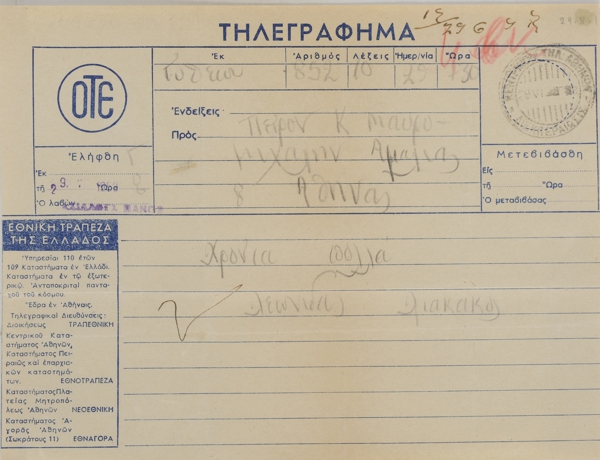 ΤΗΛΕΓΡΑΦΗΜΑ
ΟΤΕ
Ἐκ Ἀριθμός Λέξεις Ἡμερ/νία Ὥρα
Γυθείου 852 10 29 730
Ἐνδείξεις:
Πρός: Πέτρον Κ Μαυρο-
μιχάλην Ἀμαλίας
8 Ἀθήνας
Ἐλήφθη
Ἐκ
τῇ 29 Ὥρα 8
Ὁ λαβών
Μετεβιβάσθη
Εἰς
τῇ Ὥρα
Ὁ μεταβιβάσας
ΕΘΝΙΚΗ ΤΡΑΠΕΖΑ
ΤΗΣ ΕΛΛΑΔΟΣ
Ὑπηρεσίαι 110 ἐτῶν
109 Καταστήματα ἐν Ἑλλάδι.
Καταστήματα ἐν τῷ ἐξωτερι-
κῷ. Ἀνταποκριταί παντα-
χοῦ τοῦ κόσμου.
Ἕδρα ἐν Ἀθήναις.
Τηλεγραφικαί Διευθύνσεις:
Διοικήσεως ΤΡΑΠΕΘΝΙΚΗ
Κεντρικοῦ Κατα-
στήματος Ἀθηνῶν,
Καταστήματος Πει-
ραιῶς καί ἐπαρχια-
κῶν καταστημά-
των. ΕΘΝΟΤΡΑΠΕΖΑ
Καταστήματος Πλα-
τείας Μητροπό-
λεως Ἀθηνῶν ΝΕΟΕΘΝΙΚΗ
Καταστήματος Ἀ-
γορᾶς Ἀθηνῶν
(Σωκράτους 11) ΕΘΝΑΓΟΡΑ
Χρόνια πολλά
Λεωνίδας